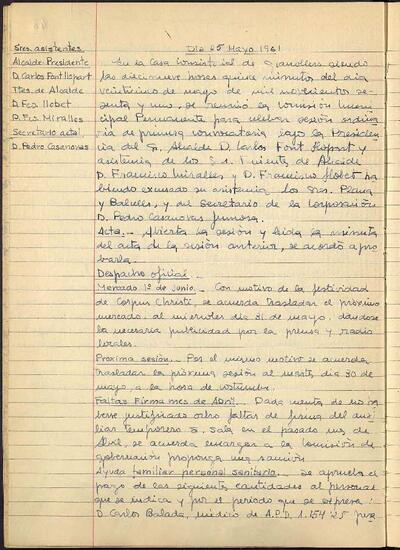 Sres. asistentes
Alcalde-Presidente
D. Carlos Font Llopart
Ttes de Alcalde
D. Fco Llobet
D. Fco Miralles
Secretario actal.
D. Pedro Casanovas
Día 25 Mayo 1961
En la Casa Consistorial de Granollers siendo
las diecinueve horas quince minutos del día
de mayo de mil novecientos se-
senta y uno, se reunió la Comisión Muni-
cipal Permanente para celebrar sesión ordina-
ria de primera convocatoria bajo la Presiden-
cia del Sr. Alcalde D. Carlos Font Llopart y
asistencia de los Srs. Tenientes de Alcalde
D. Francisco Miralles y D. Francisco Llobet ha-
biendo excusado su asistencia los Sres. Plana
y Babelles, y del Secretario de la Corporación
D. Pedro Casanovas
Acta.- Abierta la sesión y leída la minuta
del acta de la sesión anterior, se acordó apro-
barla.
Despacho oficial.-
Mercado 1º de Junio.- Con motivo de la festividad
de Corpus Christi, se acuerda trasladar el próximo
mercado al miércoles día 31 de mayo, dándose
la necesaria publicidad por la prensa y radio
locales.
Próxima sesión.- Por el mismo motivo se acuerda
trasladar la próxima sesión al martes día 30 de
mayo, a la hora de costumbre.
Faltas Firma mes de Abril.- Dada cuenta de no ha-
berse justificado otras faltas de firma del auxi-
liar temporero S. Sala en el pasado mes de
Abril, se acuerda encargar a la Comisión de
Gobernación proponga una sanción
Ayuda familiar personal sanitario.- Se aprueba el
pago de las siguientes cantidades al personal
que se indica y por el período que se expresa:
D. Carlos Balada, médico de A.P.D. 1.154'25 pts